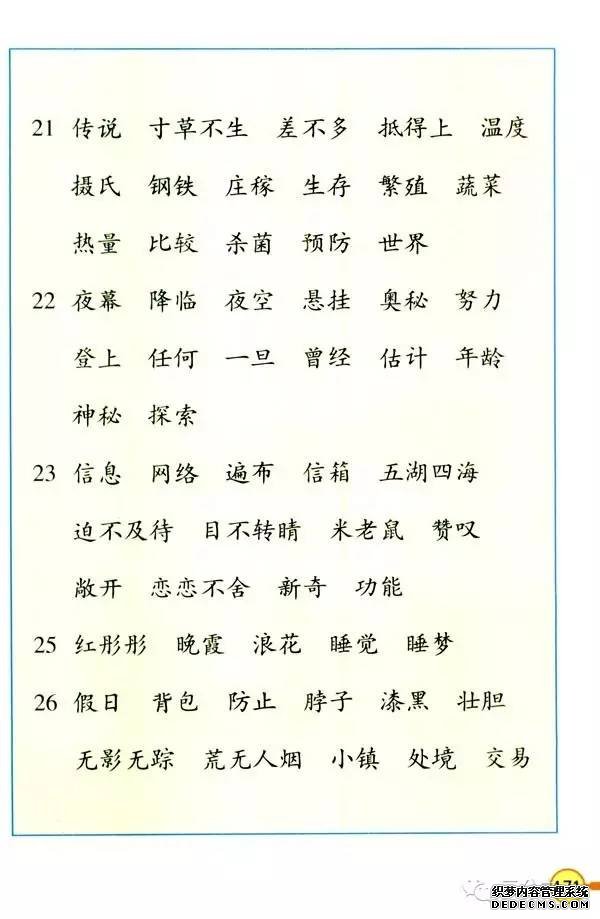 21 传说 寸草不生 差不多 抵得上 温度
摄氏 钢铁 庄稼 生存 繁殖 蔬菜
热量 比较 杀菌 预防 世界
22 夜幕 降临 夜空 悬挂 奥秘 努力
登上 任何 一旦 曾经 估计 年龄
神秘 探索
23 信息 网络 遍布 信箱 五湖四海
迫不及待 目不转睛 米老鼠 赞叹
敞开 恋恋不舍 新奇 功能
25 红彤彤 晚霞 浪花 睡觉 睡梦
26 假日 背包 防止 脖子 漆黑 壮胆
无影无踪 荒无人烟 小镇 处境 交易
171
织梦内容管理系统
DEDECMS.COM